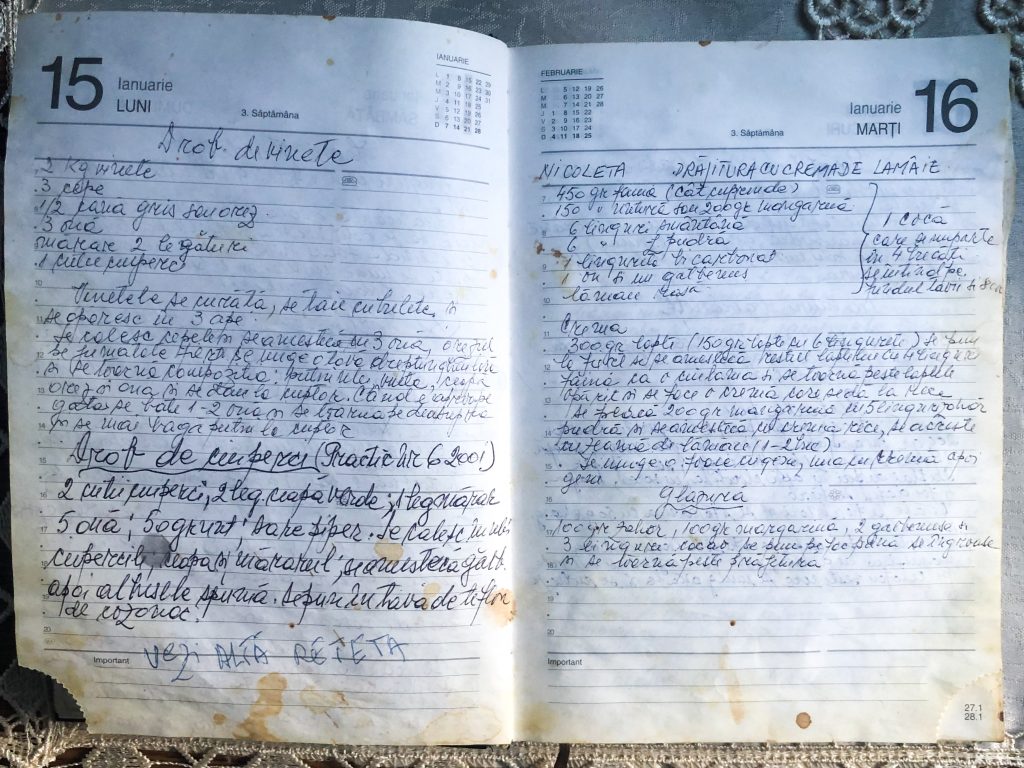 15
Ianuarie
LUNI
3. Săptămâna
IANUARIE
L 1 8 15 22 29
M 2 9 16 23 30
M 3 10 17 24 31
J 4 11 18 25
V 5 12 19 26
S 6 13 20 27
D 7 14 21 28
Drob de vinete
2 Kg vinete
3 cepe
1/2 cana gris sau orez
3 ouă
mărar 2 legături
1 cutie ciuperci
Vinetele se curăță, se taie cubulețe și
se opăresc în 3 ape.
Se călesc cepele, se amestecă cu 3 ouă, orezul
pe jumătate fiert. Se unge o tavă
și se toarnă compoziția: vinete, ceapa
orez și ouă și se dau la cuptor. Când e aproape
gata se bate 1-2 ouă și se toarnă pe deasupra
și se mai bagă puțin la cuptor
Drob de ciuperci (Practic Nr 6 2001)
2 cutii ciuperci, 2 leg. ceapă verde, 1 leg mărar
5 ouă; 50 gr unt; sare piper. Se călesc în unt
ciupercile, ceapa și mărarul, se amestecă gălb.
apoi albușele spumă. Se pun în tava de teflon
de cozonac.
VEZI ALTĂ REȚETA
Important
16
Ianuarie
MARȚI
3. Săptămâna
FEBRUARIE
L 5 12 19 26
M 6 13 20 27
M 7 14 21 28
J 1 8 15 22
V 2 9 16 23
S 3 10 17 24
D 4 11 18 25
NICOLETA PRĂJITURA CU CREMA DE LAMÂIE
450 gr făina (cât cuprinde)
150 " untură sau 200 gr margarină
6 linguri smântână
6 " pudră
1 linguriță bicarbonat
1 ou și un gălbenuș
lămâie rasă
1 cocă
care se împarte
în 4 bucăți
se întind pe
fundul tăvii și se coc
Crema
300 gr lapte (150 gr lapte cu 6 linguri) se pun
la fiert și se amestecă restul laptelui cu 4 linguri
făină ca o și se toarnă peste laptele
opărit și se face o cremă care se dă la rece
Se freacă 200 gr margarină cu 5 linguri zahăr
pudră și se amestecă cu crema rece, se adaugă
cu zeamă de lămâie (1-2 buc)
Se unge o foaie cu gem, una cu cremă apoi
gem.
Glazură
100 gr zahăr, 100 gr margarină, 2 gălbenușe și
3 linguri cacao se pun pe foc până se îngroașă
și se toarnă peste prăjitură
Important
27.1
28.1